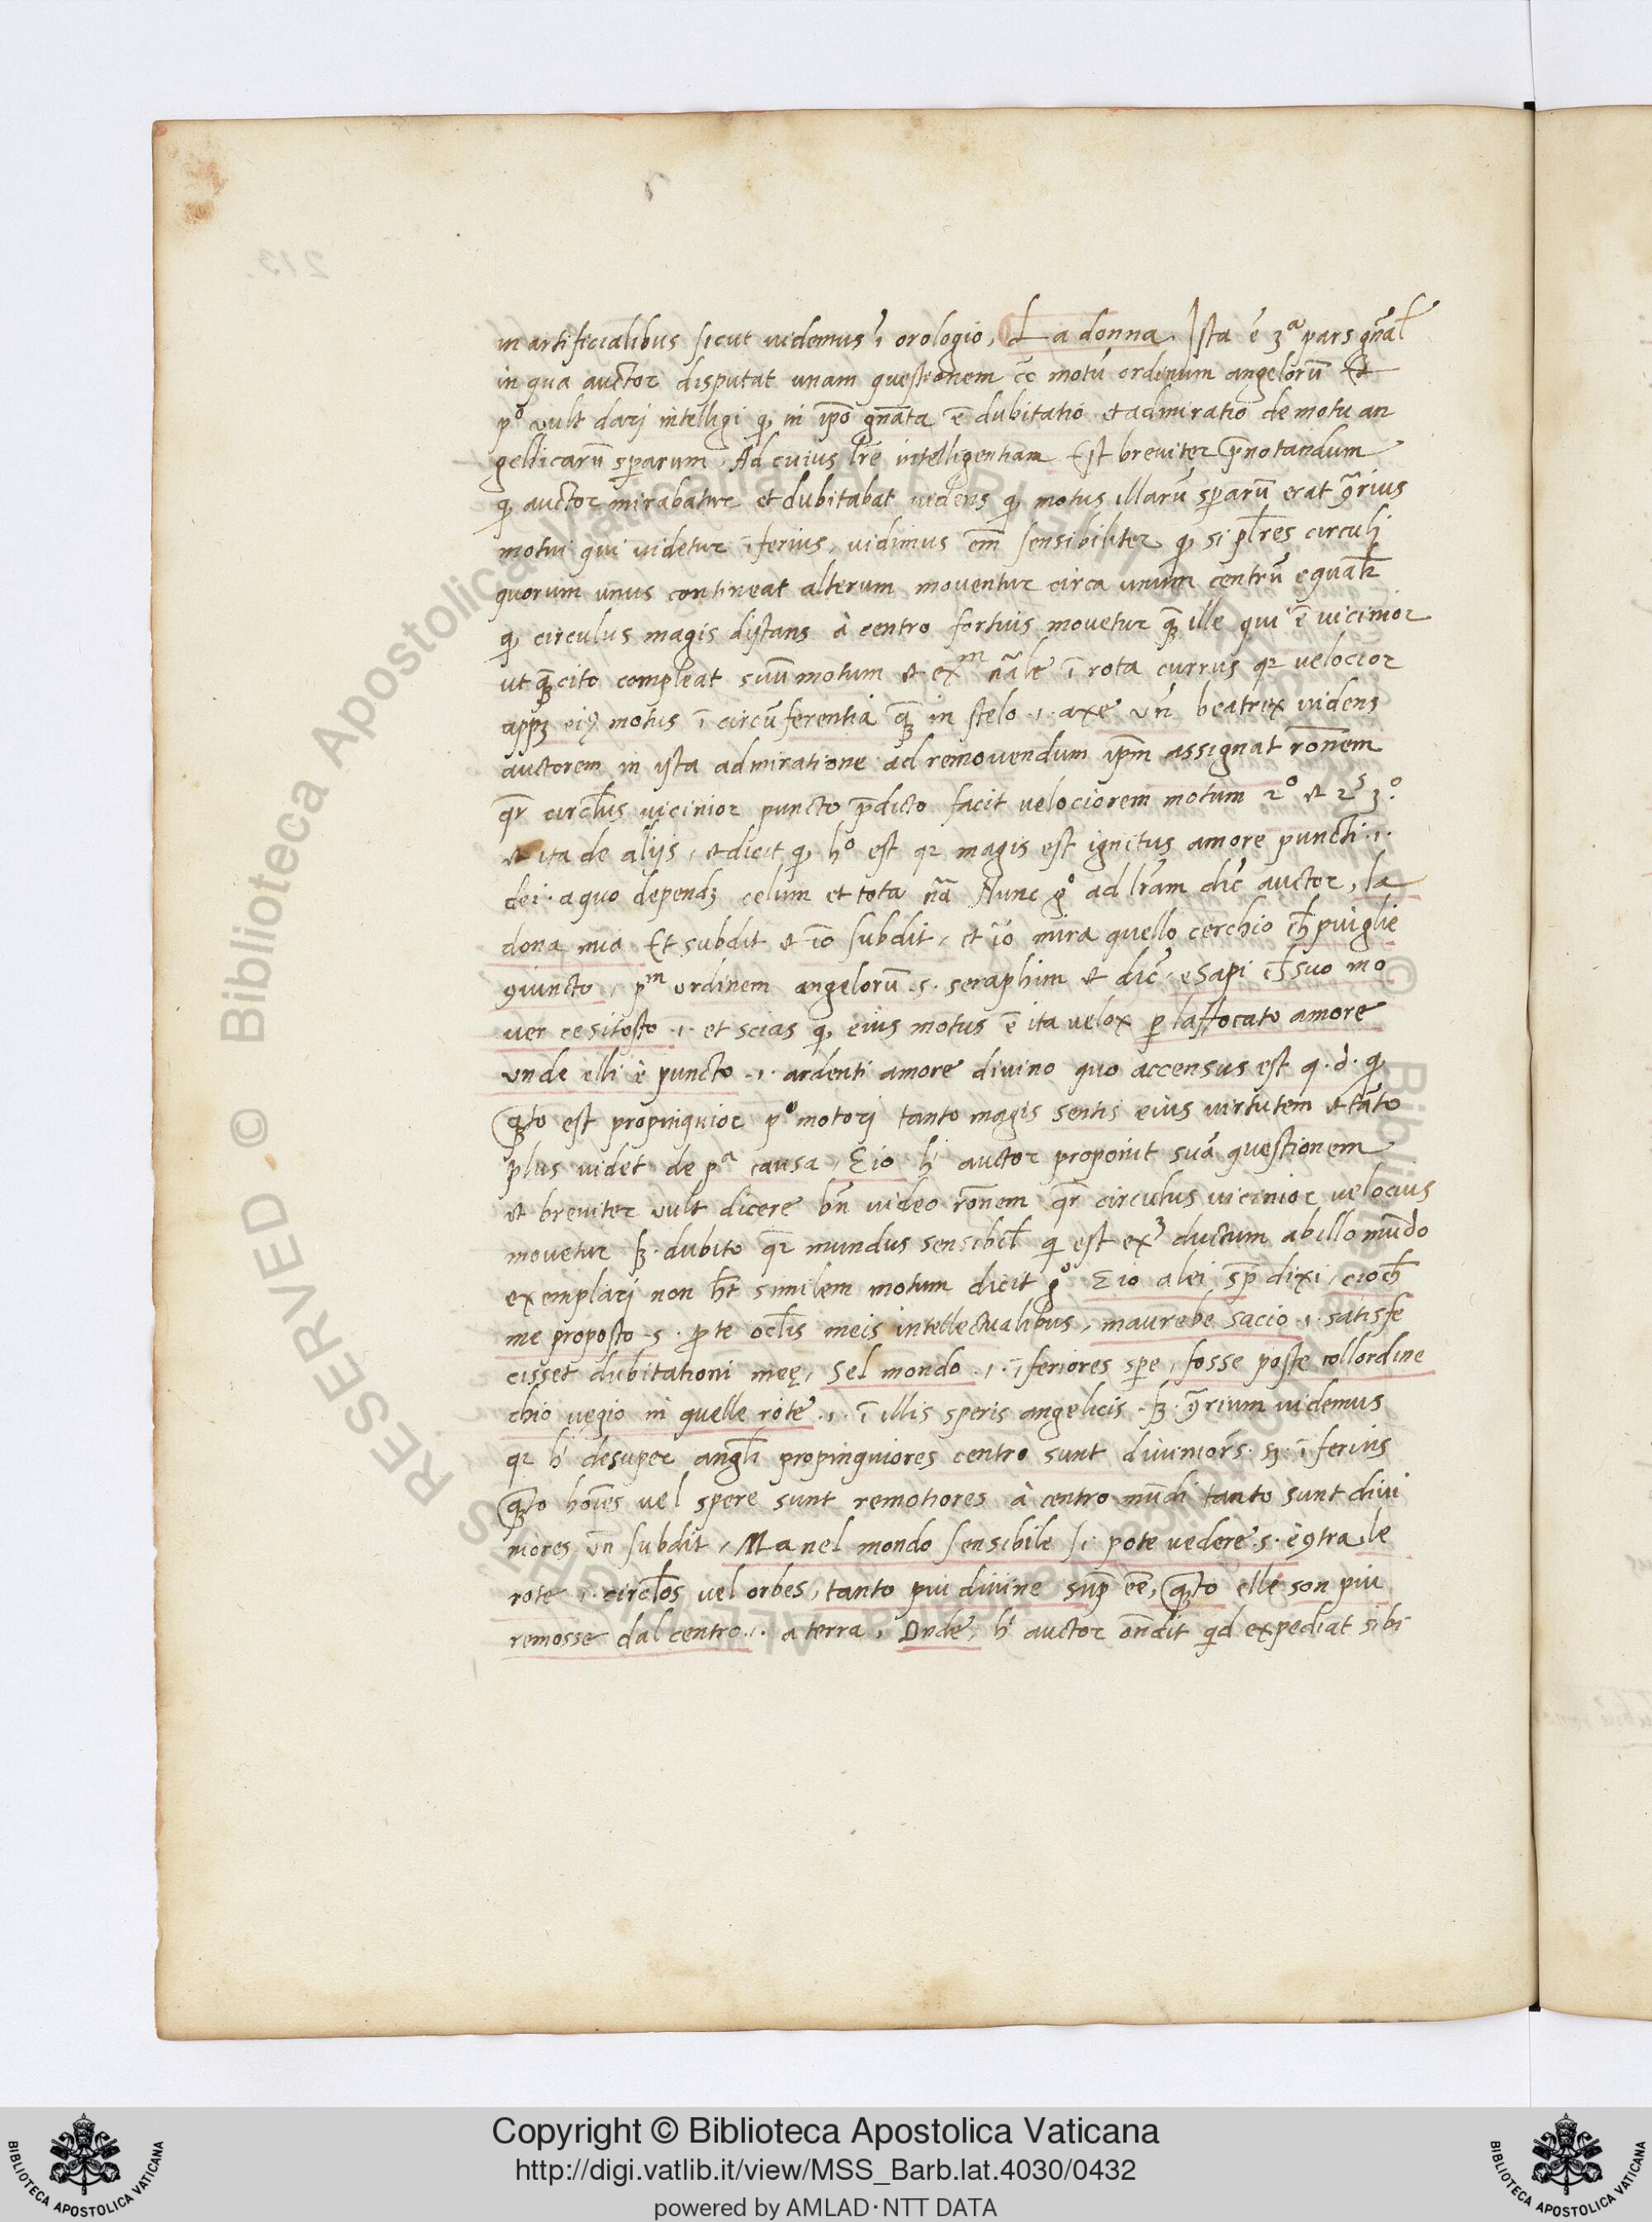 in artificialibus sicut videmus ĩ orologio, La donna. Ista ẽ 3ª pars gñal
in qua auctor disputat unam questionem cc̃ motũ ordinum angelorũ Et
pº vult dari intelligi ꝙ in ipõ gñata ẽ dubitatio et admiratio de motu an
gelicarũ sperarum. Ad cuius lrẽ intelligentiam Est breviter p̃notandum
ꝙ auctor mirabatur et dubitabat videns ꝙ motus illarũ sperarũ erat ꝯ̃rius
motui qui videtur ĩferius, vidimus em̃ sensibiliter ꝙ si pl̃res circuli
quorum unus contineat alterum moventur circa unum centrũ equalr̃
ꝙ circulus magis distans à centro fortius movetur q̃ȝ ille qui ẽ vicinior
ut q̃ȝ cito compleat suũ motum et exᵐ nãle ĩ rota currus qꝛ velocior
appȝ eiꝰ motus ĩ circũferentia q̃ȝ in stelo .i. axe vñ beatrix videns
auctorem in ista admiratione ad removendum ipm̃ assignat rõnem
qr̃ circl̃us vicinior puncto p̃dicto facit velociorem motum 2º et 2ˢ 3º.
et ita de alijs, et dicit ꝙ hº est qꝛ magis est ignitus amore puncti .i.
dei. a quo dependȝ celum et tota nã Nunc gº ad lr̃am dic̃ auctor, la
dona mia Et subdit et iõ subdit, et iõ mira quello cerchio ch̃ piu glie
ꝯiuncto, pᵐ ordinem angelorũ .s. seraphim et dic̃, e sapi ch̃ suo mo
ver ce si tosto .i. et scias ꝙ eius motus ẽ ita velox ꝑ laffocato amore
unde elli è puncto .i. ardenti amore divino quo accensus est q.d. ꝙ
q̃ȝto est propinquior pº motori tanto magis sentit eius virtutem et tãto
plus videt de pª causa, Eio hⁱ auctor proponit suã questionem
et breviter vult dicere bñ video rõnem qr̃ circulus vicinior velocius
movetur sȝ. dubito qr̃ mundus sensibil̃ qi est exȝ ductum ab illo mũdo
exemplari non ht̃ similem motum dicit gº Eio alei sp̃ dixi, cioch̃
me proposto .s. ꝑ te ocl̃is meis intellectualibus, maurebe sacio .i. satisfe
cisset dubitationi meę, Sel mondo .i. ĩferiores spe, fosse poste collordine
chio vegio in quelle rote .i. ĩ illis speris angelicis. sȝ. ꝯ̃rium videmus
qꝛ hⁱ desuper angl̃i propinquiores centro sunt diviniors̃. sȝ. ĩferius
q̃ȝto hoĩes vel spere sunt remotiores à centro mũdi tanto sunt divi
niores vñ subdit, Ma nel mondo sensibile si pote vedere .s. è ꝯtra le
rote .i. circl̃os vel orbes, tanto piu divine sup̃ eẽ, q̃ȝto elle son piu
remosse dal centro .i. a terra, Onde, hⁱ auctor oñdit qid expediat sibi
Copyright © Biblioteca Apostolica Vaticana
http://digi.vatlib.it/view/MSS_Barb.lat.4030/0432
powered by AMLAD·NTT DATA